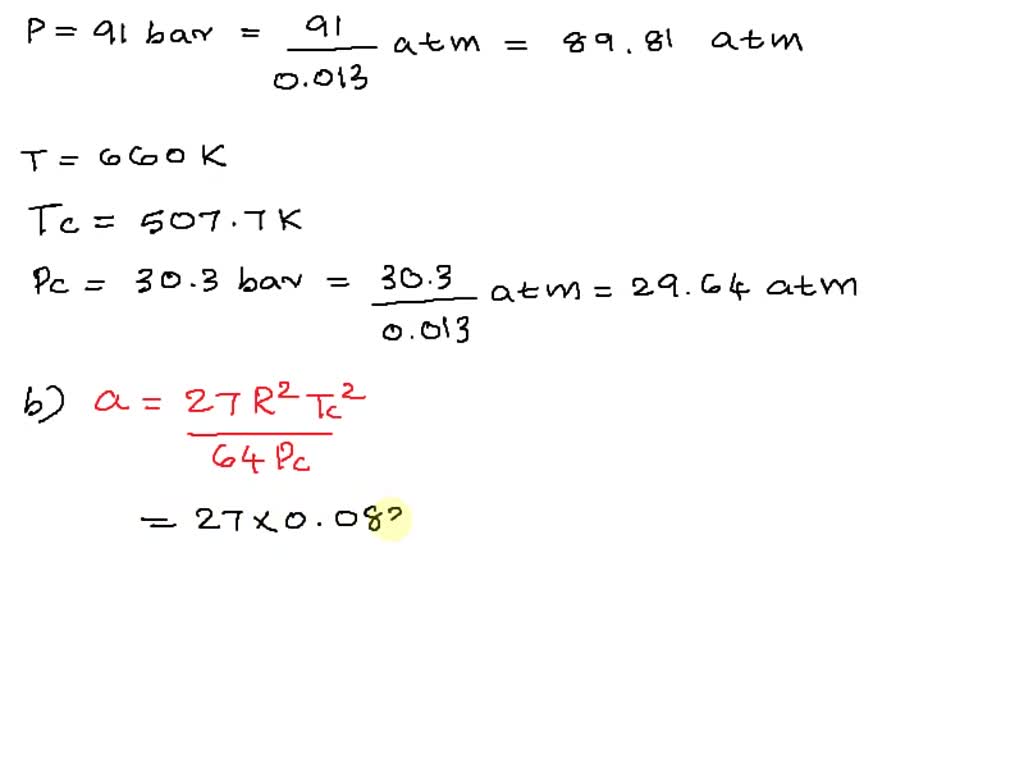 P = 91 bar = 91/0.013 atm = 89.81 atm
T = 660 K
Tc = 507.7 K
Pc = 30.3 bar = 30.3/0.013 atm = 29.64 atm
b) a = 27 R² Tc² / 64 Pc
= 27 × 0.082